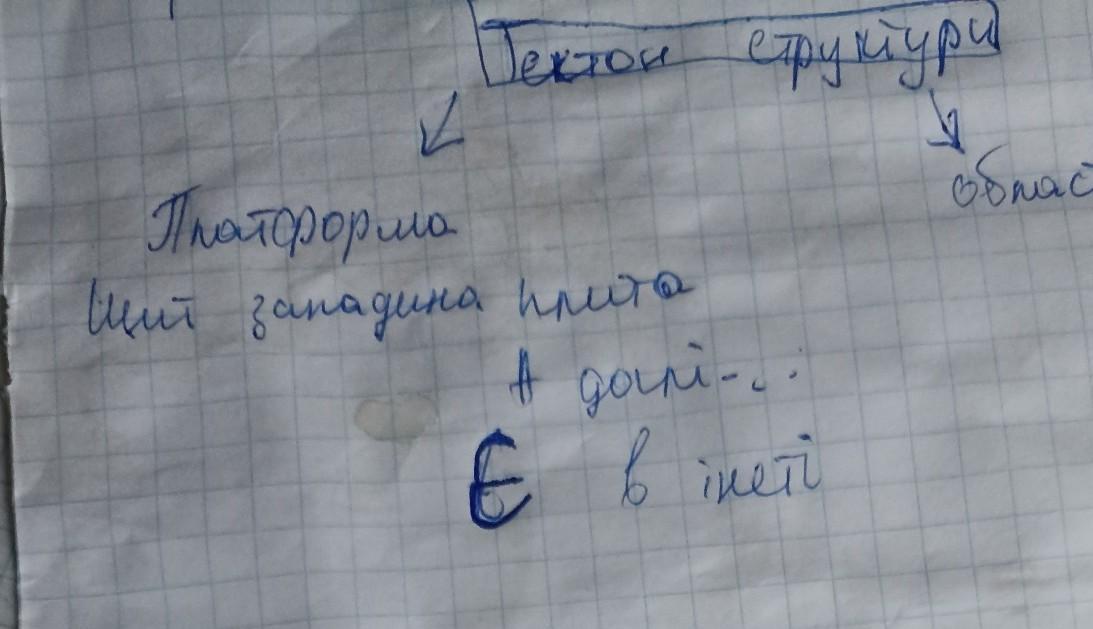 Тектон структури
облас
Платформа
Щит западина плита
А далі-...
Є в інеті